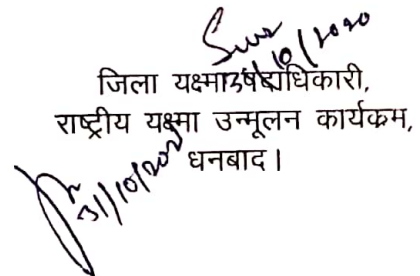 31/10/2020
जिला यक्ष्मा पदाधिकारी,
राष्ट्रीय यक्ष्मा उन्मूलन कार्यकम,
धनबाद।
31/10/2020